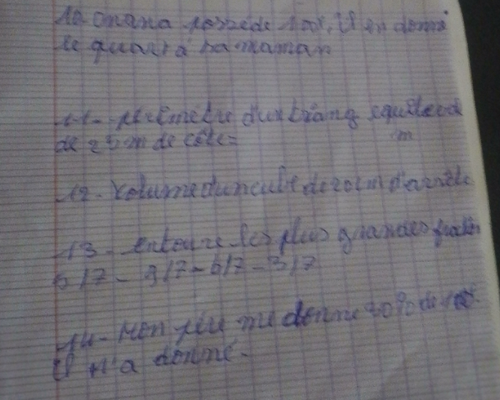 10 onana possède 1 $00F. Il en donne
le quart a sa maman
11 - périmètre d'un triang equilateral
de 25 m de côté = m
12 - Volume d'un cube de 20 cm d'arrête
13 - entoure les plus grandes
5/7 - 9/7 - 6/7 - 3/7
14 - Mon père me donne 30% de
Il m'a donné -